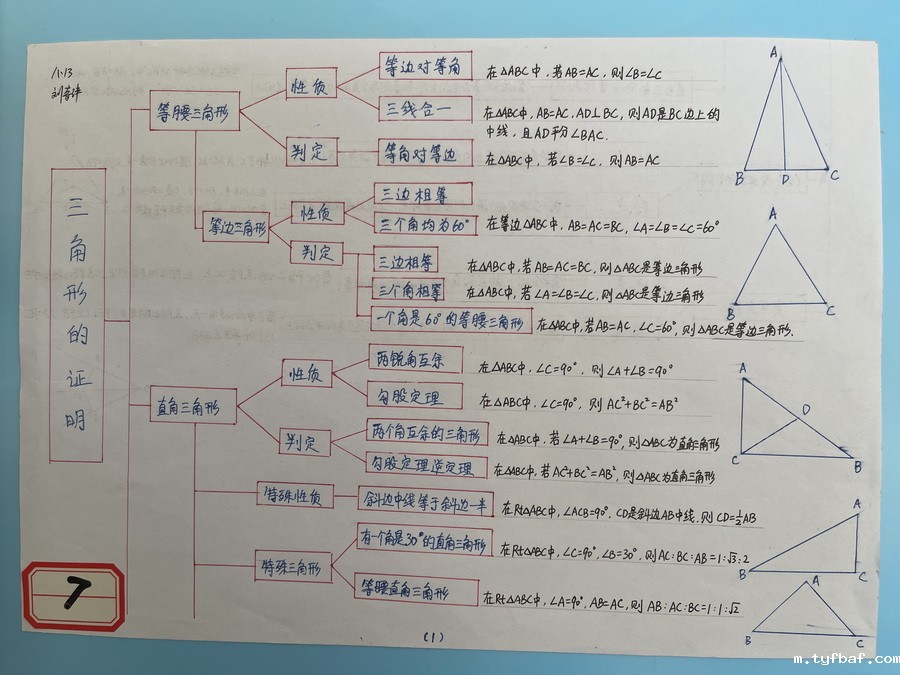 1.13
三角形的证明
等腰三角形
性质
等边对等角
在△ABC中，若AB=AC，则∠B=∠C
三线合一
在△ABC中，AB=AC，AD⊥BC，则AD是BC边上的
中线，且AD平分∠BAC.
判定
等角对等边
在△ABC中，若∠B=∠C，则AB=AC
A
B
D
C
等边三角形
性质
三边相等
三个角均为60°
在等边△ABC中，AB=AC=BC，∠A=∠B=∠C=60°
判定
三边相等
在△ABC中，若AB=AC=BC，则△ABC是等边三角形
三个角相等
在△ABC中，若∠A=∠B=∠C，则△ABC是等边三角形
一个角是60°的等腰三角形
在△ABC中，若AB=AC，∠C=60°，则△ABC是等边三角形.
A
B
C
直角三角形
性质
两锐角互余
在△ABC中，∠C=90°，则∠A+∠B=90°
勾股定理
在△ABC中，∠C=90°，则AC²+BC²=AB²
判定
两个角互余的三角形
在△ABC中，若∠A+∠B=90°，则△ABC为直角三角形
勾股定理逆定理
在△ABC中，若AC²+BC²=AB²，则△ABC为直角三角形
A
D
C
B
特殊性质
斜边中线等于斜边一半
在Rt△ABC中，∠ACB=90°，CD是斜边AB中线，则CD=½AB
特殊三角形
有一个角是30°的直角三角形
在Rt△ABC中，∠C=90°，∠B=30°，则AC:BC:AB=1:√3:2
A
B
C
等腰直角三角形
在Rt△ABC中，∠A=90°，AB=AC，则AB:AC:BC=1:1:√2
A
B
C
7
(1)
m.tyfbaf.com